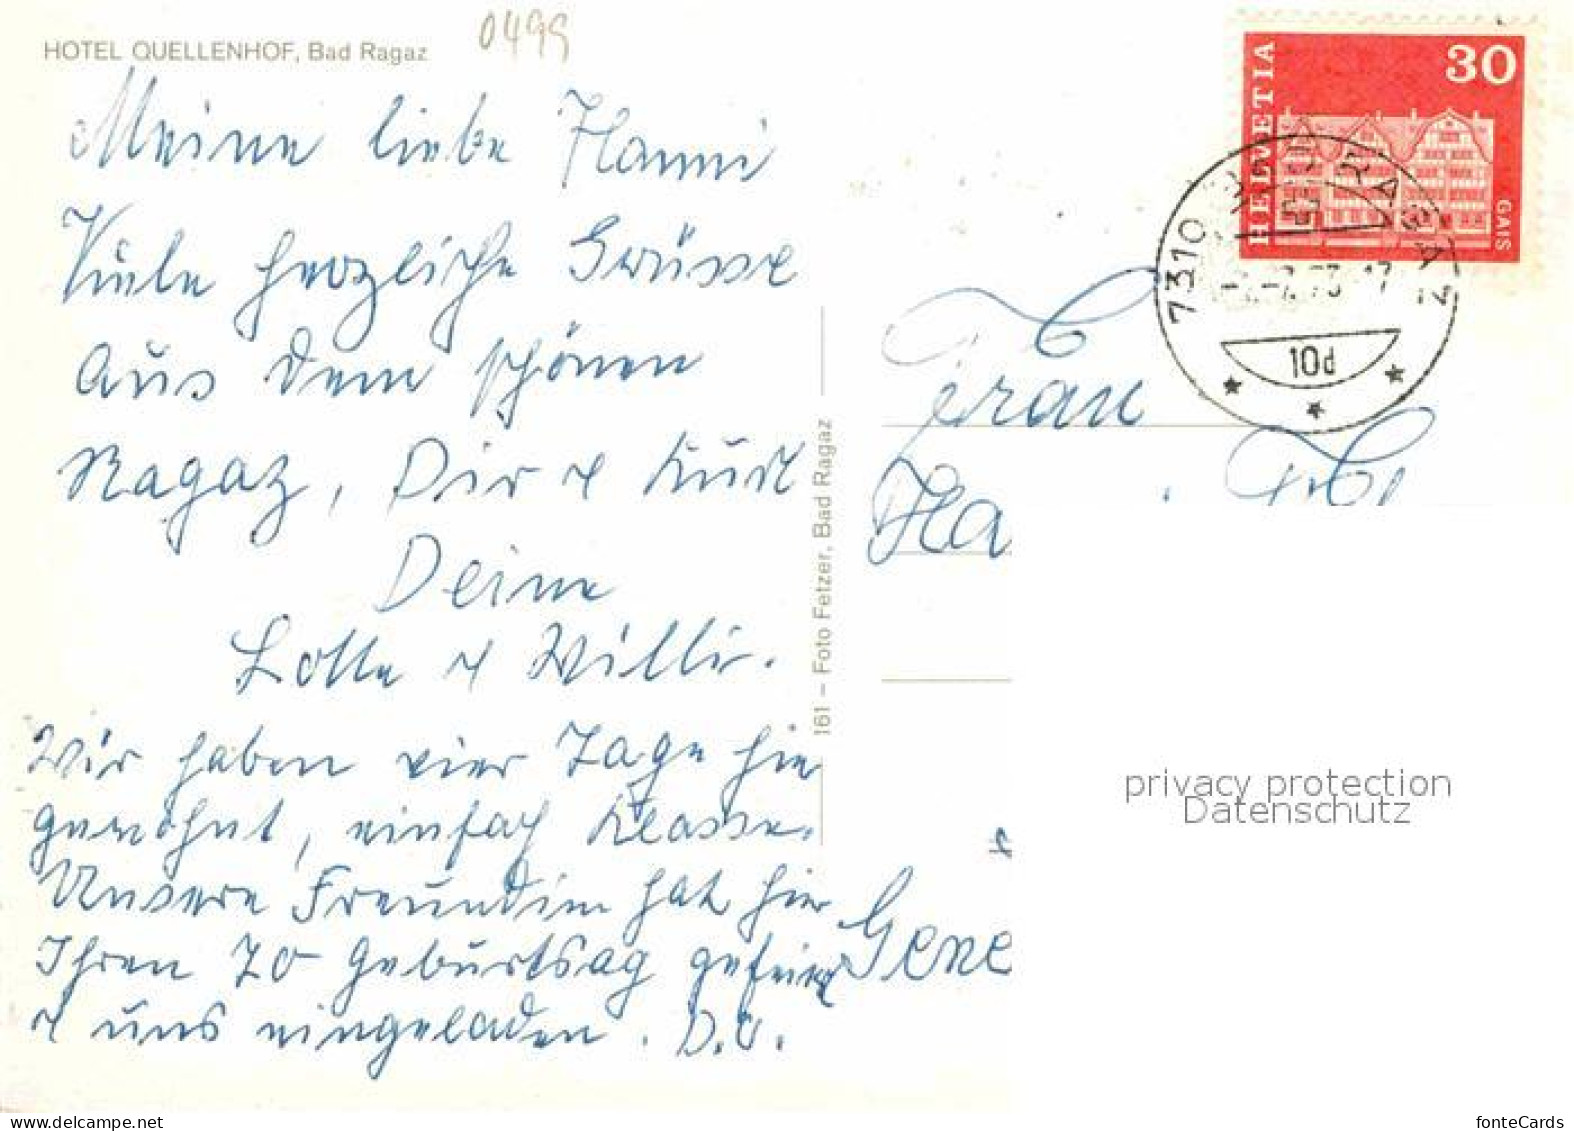 HOTEL QUELLENHOF, Bad Ragaz
0499
Meine liebe Hanni
Viele herzliche Grüsse
aus dem schönen
Ragaz, Dir & Kurt
Deine
Lotte & Willi.
Wir haben vier Tage hier
gewohnt, einfach Klasse.
Unsere Freundin hat hier
Ihren 70 Geburtsag gefeiert
& uns eingeladen. D.O.
161 – Foto Fetzer, Bad Ragaz
HELVETIA
30
GAIS
7310 BAD RAGAZ
10d
Frau
Ha
Gene
privacy protection
Datenschutz
www.delcampe.net
fonteCards